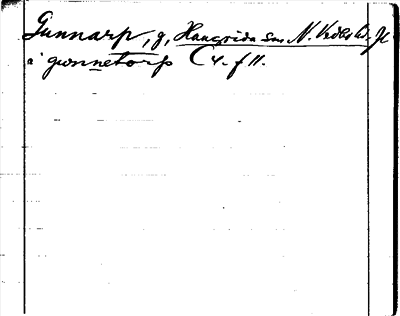 Gunnarp, g, Haurida sn N. Vedbo hd Jk
i gunnetorp C 4. f 11.